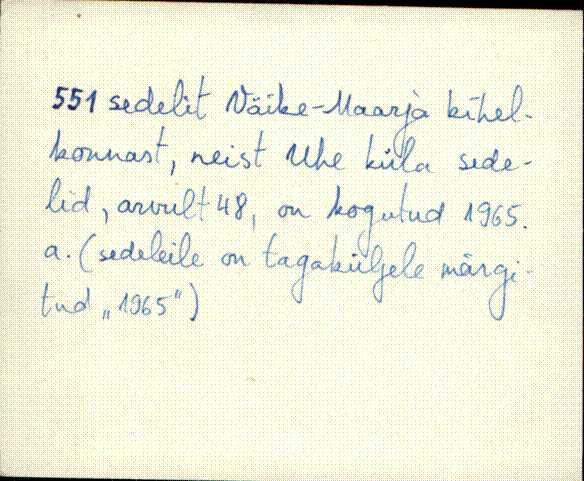 551 sedelit Väike-Maarja kihel-
konnast, neist Uhe küla sede-
lid, arvult 48, on kogutud 1965.
a. (sedeleile on tagaküljele märgi-
tud „1965")